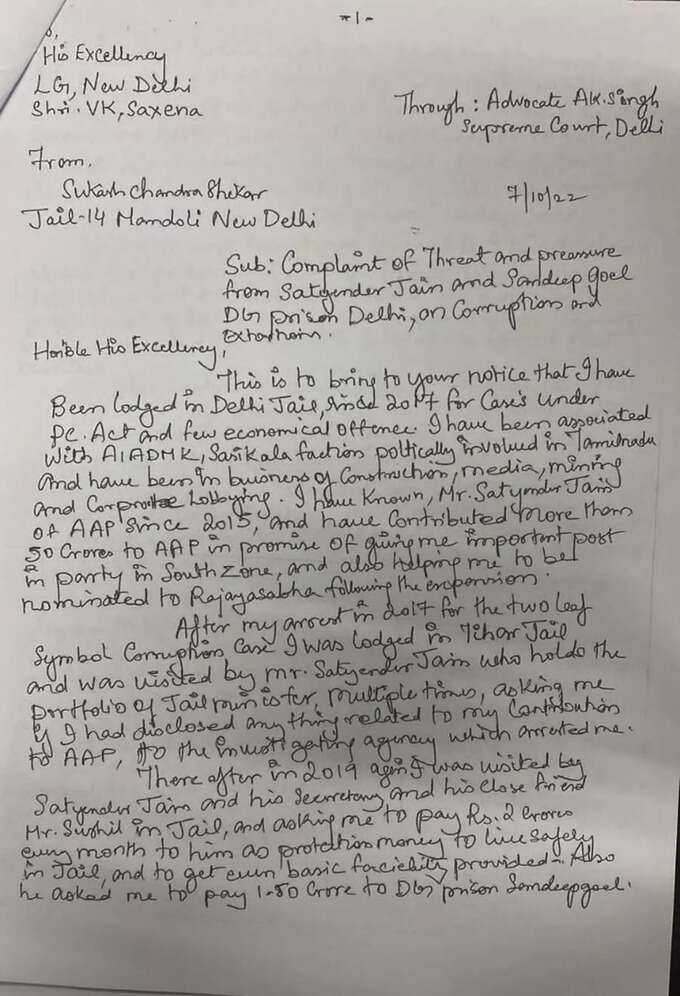 -1-
o,
His Excellency
LG, New Delhi
Shri. VK, Saxena
Through : Advocate AK. Singh
Supreme Court, Delhi
From.
Sukash Chandra Shekar
Jail-14 Mandoli New Delhi
7/10/22
Sub: Complaint of Threat and preasure
from Satyender Jain and Sandeep Goel
DG prison Delhi, on Corruption and
Hon'ble His Excellency,
This is to bring to your notice that I have
Been lodged in Delhi Jail, since 2017 for Case's under
PC. Act and few economical offence. I have been associated
With AIADMK, Sasikala faction poltically involved in Tamilnadu
and have been in business of Construction, media, mining
and Lobbying. I have Known, Mr. Satyender Jain
of AAP since 2015, and have Contributed more than
50 Crores to AAP in promise of giving me important post
in party in South Zone, and also helping me to be
nominated to Rajayasabha following the expension.
After my arrest in 2017 for the two leaf
Symbol Corruption Case I was lodged in Tihar Jail
and was visited by mr. Satyender Jain who holds the
portfolio of Jail minister, multiple times, asking me
if I had disclosed anything related to my Contribution
to AAP, to the investigating agency which arrested me.
There after in 2019 again I was visited by
Satyender Jain and his Secretary, and his close friend
Mr. Sushil in Jail, and asking me to pay Rs. 2 Crores
every month to him as protection money to live safely
in Jail, and to get even basic provided. Also
he asked me to pay 1.50 Crore to DG prison Sandeep goel.